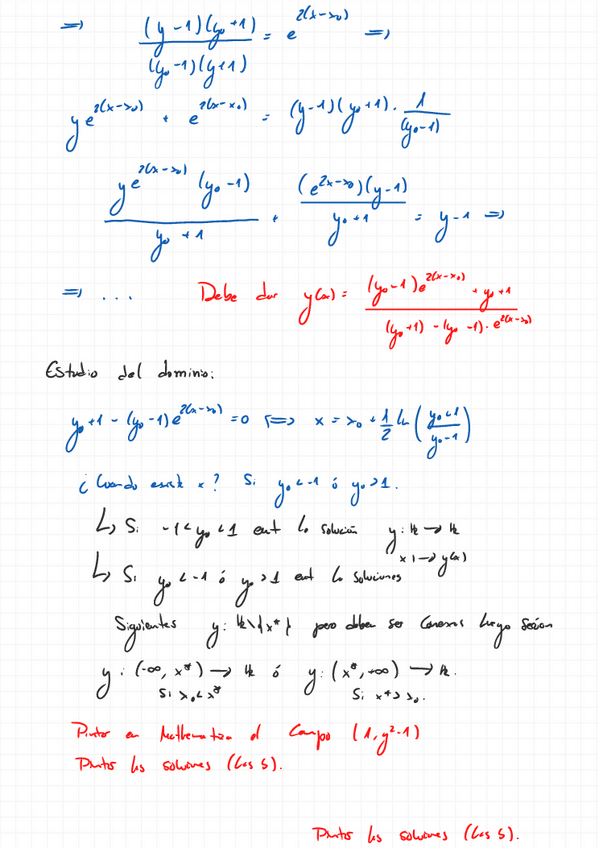 ⟹ (y-1)(y₀+1) / (y₀-1)(y+1) = e^{2(x-x₀)} ⟹
y e^{2(x-x₀)} + e^{2(x-x₀)} = (y-1)(y₀+1) · 1/(y₀-1)
y e^{2(x-x₀)} (y₀-1) / y₀+1 + (e^{2x-x₀})(y-1) / y₀+1 = y-1 ⟹
⟹ ... Debe dar y(x) = (y₀-1)e^{2(x-x₀)} + y₀+1 / (y₀+1) - (y₀-1)·e^{2(x-x₀)}
Estudio del dominio:
y₀+1 - (y₀-1)e^{2(x-x₀)} = 0 ⟺ x = x₀ + 1/2 ln( y₀+1 / y₀-1 )
¿Cuando existe x? Si y₀<-1 ó y₀>1.
↳ Si -1<y₀<1 ent la solución y: ℝ → ℝ
x ↦ y(x)
↳ Si y₀<-1 ó y₀>1 ent la soluciones
Siguientes y: ℝ\{x*} pero deben ser conexos luego serían
y: (-∞, x*) → ℝ ó y: (x*, +∞) → ℝ.
Si x₀<x* Si x*>x₀.
Pintar en Mathematica el campo (1, y²-1)
Pintar las soluciones (las 5).
Pintar las soluciones (las 5).